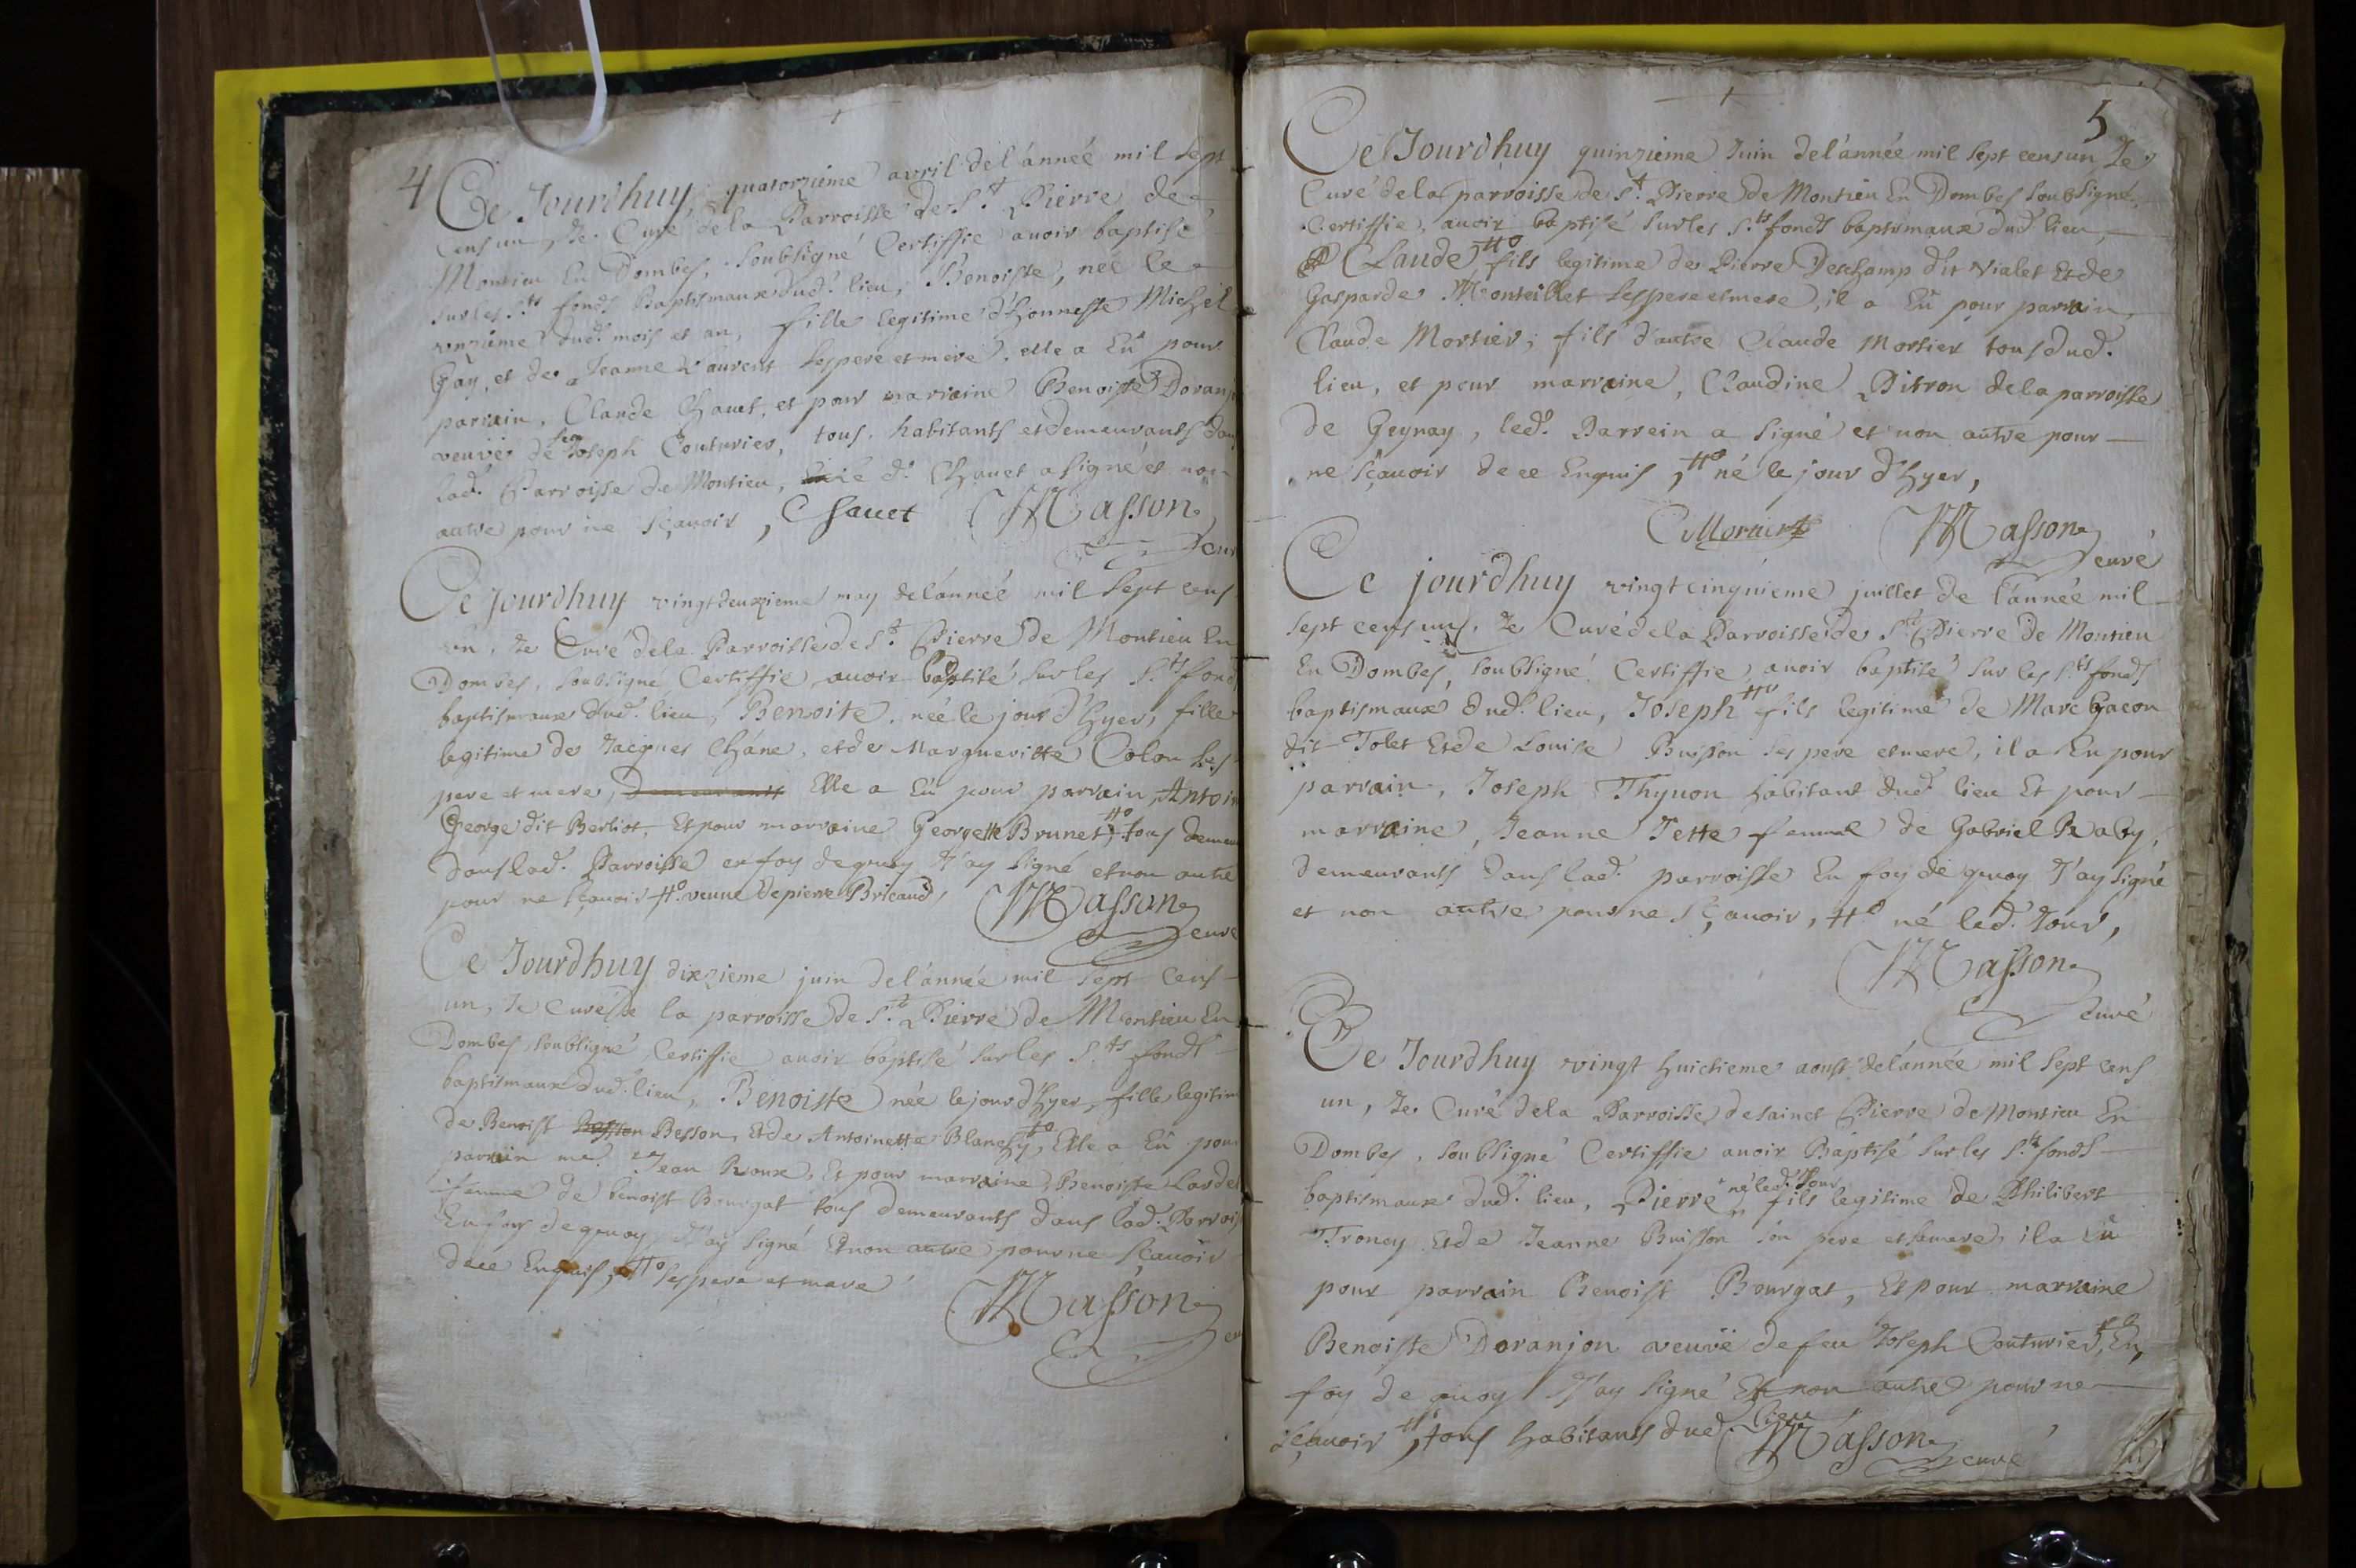 4 Ce Jourdhuy quatorzieme avril del'année mil sept
cens un Je Curé dela Parroisse de St Pierre de
Montieu En Dombes, soubsigné Certiffie avoir baptisé
sur les Sts fonds Baptismaux dud. lieu, Benoiste, née le
onzieme dud. mois et an, fille legitime d'honneste Michel
Gay, et de Jeanne Laurent ses pere et mere, elle a Eü pour
parrain, Claude Chanet, et pour marraine Benoiste Doranj
veuve de feu Joseph Couturier, tous habitants et demeurants dans
lad. Parroisse de Montieu, led. Chanet a signé et non
autre pour ne sçavoir, Chanet Masson
curé
Ce Jourdhuy vingtdeuxieme may del'année mil sept cens
un, Je Curé dela Parroisse de St Pierre de Montieu En
Dombes, soubsigné Certiffie avoir baptisé sur les Sts fonds
baptismaux dud. lieu, Benoite, née le jour d'hyer, fille
legitime de Jacques Châne, et de Margueritte Colon ses
pere et mere, demeurants Elle a Eü pour parrain Antoin
George dit Berliot, Et pour marraine Georgette Brunet, #o tous demeu
dans lad. Parroisse en foy de quoy J'ay signé et non autre
pour ne sçavoir #o veuve de pierre Bricaud, Masson
curé
Ce Jourdhuy dixzieme juin del'année mil sept cens
un, Je Curé de la parroisse de St Pierre de Montieu En
Dombes soubsigné Certiffie avoir baptisé sur les Sts fonds
baptismaux dud. lieu, Benoiste née le jour d'hyer, fille legitim
de Benoist Besson Et de Antoinette Blanchy, #o Elle a Eü pour
parrain me. Jean Roux, Et pour marraine Benoiste Lardel
femme de benoist Bourgat tous demeurants dans lad. Parrois
En foy de quoy J'ay signé Et non autre pour ne sçavoir
de ce Enquis, #o ses pere et mere
Masson
cu
5
Ce Jourdhuy quinzieme Juin del'année mil sept cens un Je
Curé dela parroisse de St Pierre de Montieu En Dombes soubsigné,
Certiffie, avoir baptisé sur les Sts fonds baptismaux dud. lieu,
Claude #o fils legitime de Pierre Deschamp dit Vialet Et de
Gasparde Monteillet ses pere et mere, il a Eü pour parrain,
Claude Mortier, fils d'autre Claude Mortier tous dud.
lieu, et pour marraine, Claudine Pitron dela parroisse
de Geynay, led. Parrein a signé et non autre pour
ne sçavoir de ce Enquis, #o né le jour d'hyer,
C Mortier Masson
curé
Ce jourdhuy vingtcinquieme juillet de l'année mil
sept cens un, Je Curé dela Parroisse de St Pierre de Montieu
En Dombes, soubsigné Certiffie avoir baptisé sur les Sts fonds
baptismaux dud. lieu, Joseph #o fils legitime de Marc Gacon
dit Tolet Et de Louise Buisson ses pere et mere, il a Eu pour
parrain, Joseph Thynon habitant dud. lieu Et pour
marraine, Jeanne Tette femme de Gabriel Raby,
demeurants dans lad. parroisse En foy de quoy J'ay signé
et non autre pour ne sçavoir, #o né led. Jour,
Masson
curé
Ce Jourdhuy vingt huictieme aoust del'année mil sept cens
un, Je Curé dela Parroisse de sainct Pierre de Montieu En
Dombes, soubsigné Certiffie avoir Baptisé sur les Sts fonds
baptismaux dud. lieu, Pierre né led. Jour fils legitime de Philibert
Troncy Et de Jeanne Buisson son pere et sa mere, il a Eü
pour parrain Benoist Bourgat, Et pour marraine
Benoiste Doranjon veuve de feu Joseph Couturier, #o En
foy de quoy J'ay signé Et non autre pour ne
sçavoir, #o tous habitants dud. lieu Masson
curé